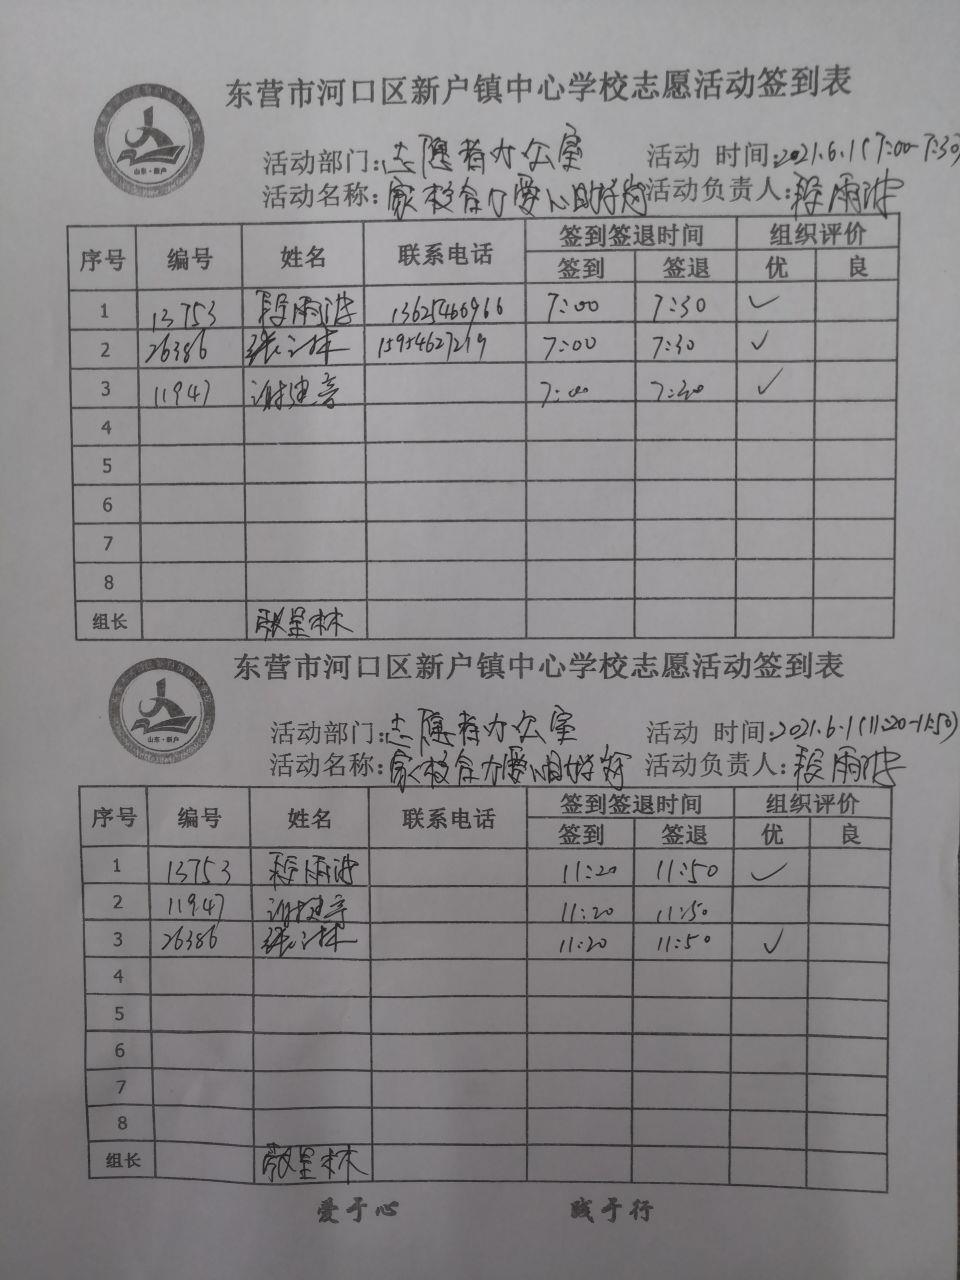 东营市河口区新户镇中心学校志愿活动签到表
山东·新户
活动部门:志愿者办公室 活动 时间:2021.6.1(7:00-7:30)
活动名称:家校合力爱心 活动负责人:段雨波
序号 编号 姓名 联系电话 签到签退时间 组织评价
签到 签退 优 良
1 13753 段雨波 13625466966 7:00 7:30 ✓
2 26386 张 15954627219 7:00 7:30 ✓
3 11947 谢 7:00 7:30 ✓
4
5
6
7
8
组长
东营市河口区新户镇中心学校志愿活动签到表
山东·新户
活动部门:志愿者办公室 活动 时间:2021.6.1(11:20-11:50)
活动名称:家校合力爱心 活动负责人:段雨波
序号 编号 姓名 联系电话 签到签退时间 组织评价
签到 签退 优 良
1 13753 段雨波 11:20 11:50 ✓
2 11947 谢 11:20 11:50
3 26386 张 11:20 11:50 ✓
4
5
6
7
8
组长
爱于心 践于行